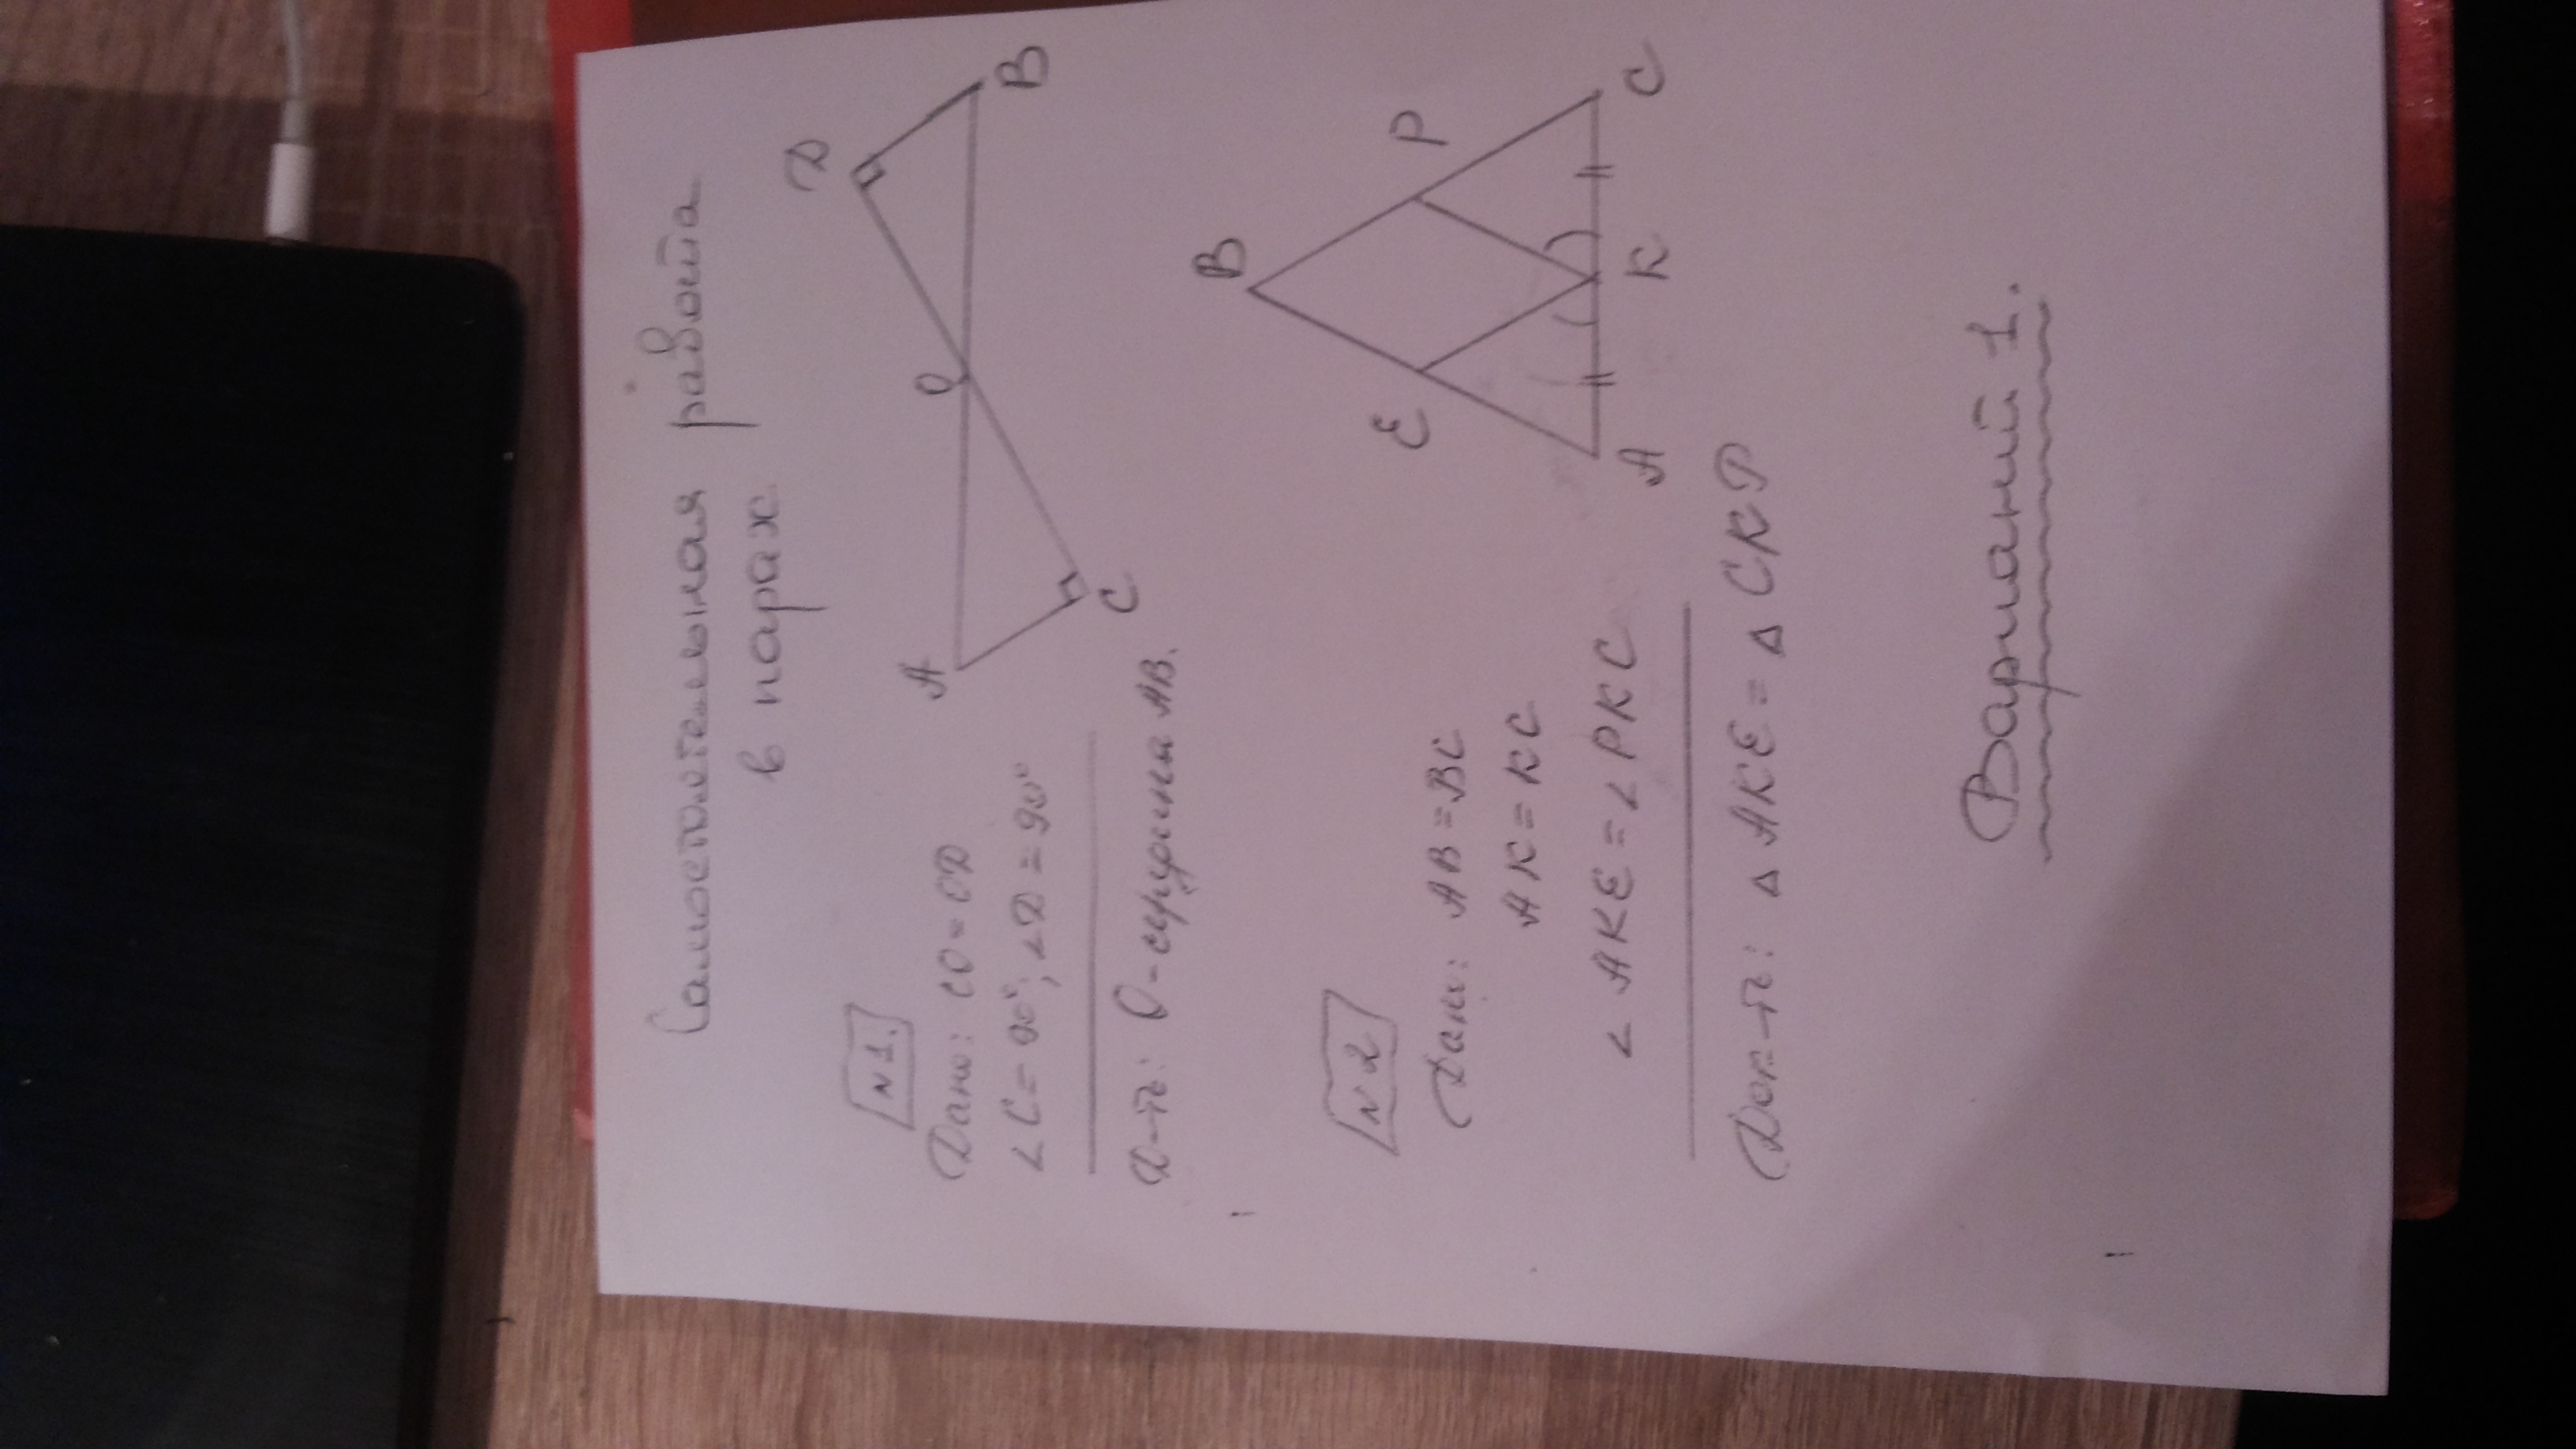 Самостоятельная работа
в парах
N 1.
Дано: CO = OD
∠C = 90°, ∠D = 90°
Д-ть: O - середина AB.
A
C
O
D
B
N 2
Дано: AB = BC
AK = KC
∠ AKE = ∠ PKC
Док-ть: △ AKE = △ CKP
B
E
P
A
K
C
Вариант 1.